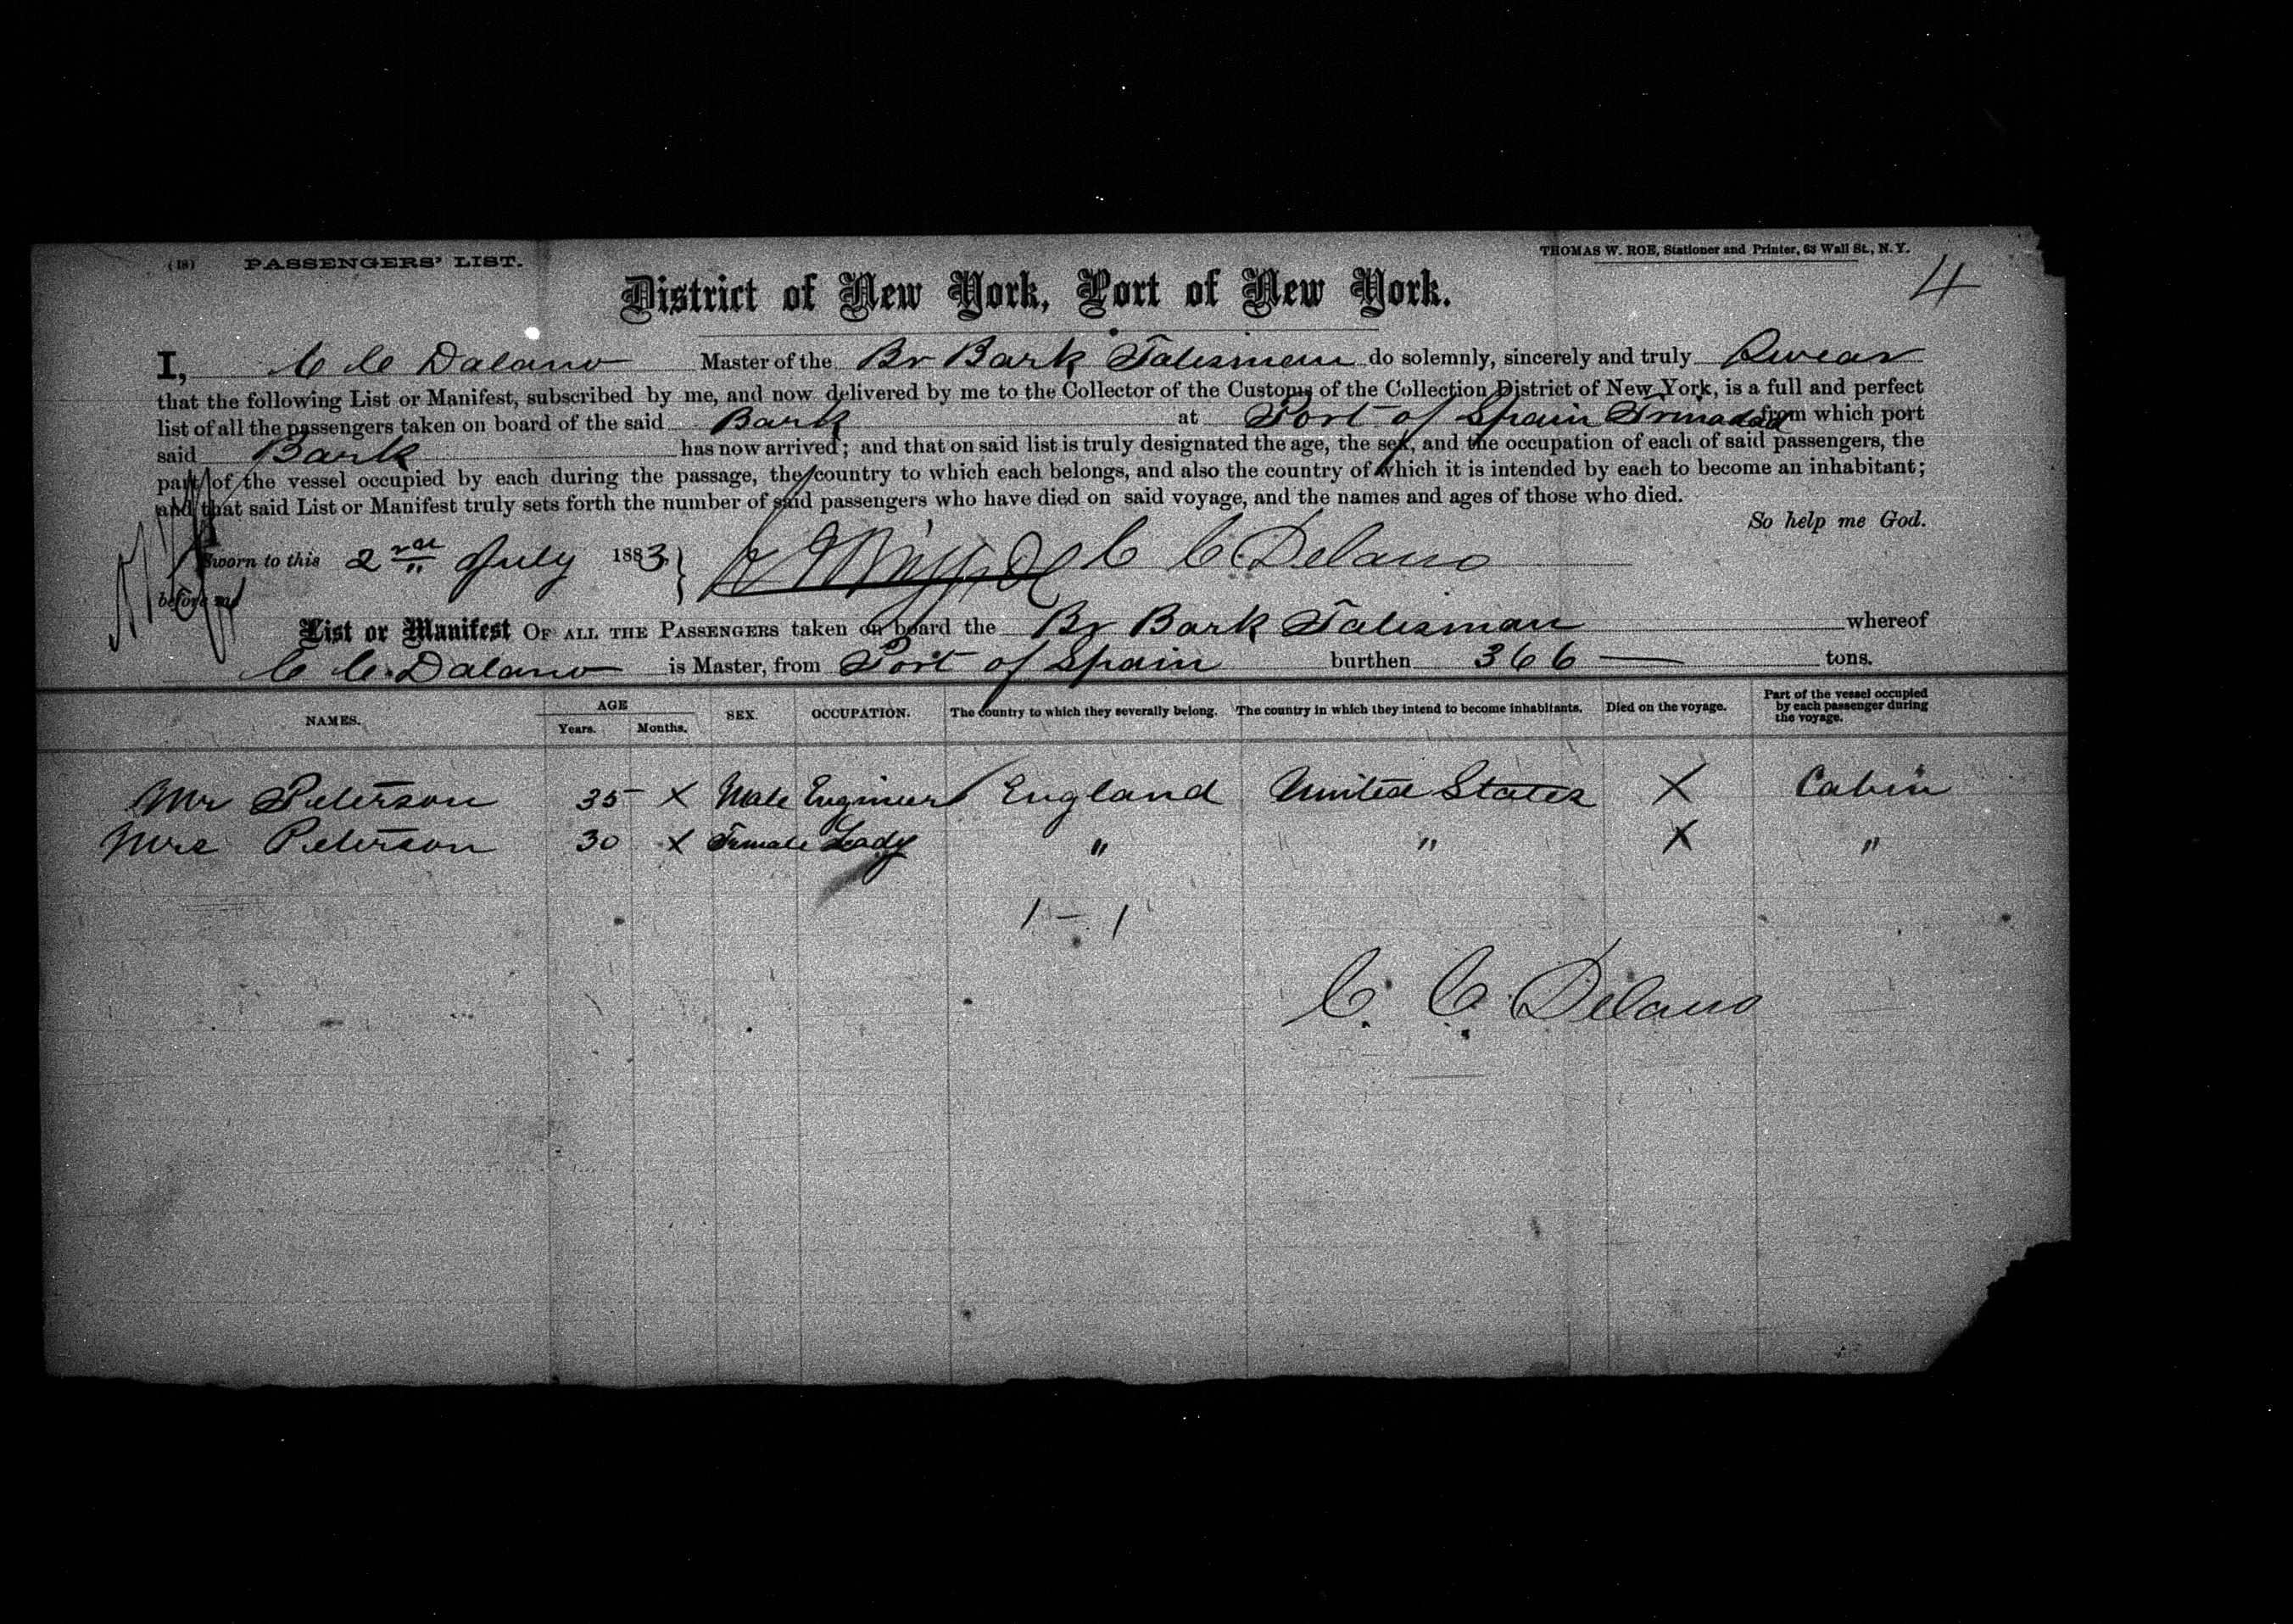 (18) PASSENGERS' LIST.
THOMAS W. ROE, Stationer and Printer, 63 Wall St., N. Y.
4
District of New York, Port of New York.
I, C C Dalano Master of the Br Bark Talisman do solemnly, sincerely and truly Swear
that the following List or Manifest, subscribed by me, and now delivered by me to the Collector of the Customs of the Collection District of New York, is a full and perfect
list of all the passengers taken on board of the said Bark at Port of Spain Trinadad from which port
said Bark has now arrived; and that on said list is truly designated the age, the sex, and the occupation of each of said passengers, the
part of the vessel occupied by each during the passage, the country to which each belongs, and also the country of which it is intended by each to become an inhabitant;
and that said List or Manifest truly sets forth the number of said passengers who have died on said voyage, and the names and ages of those who died.
So help me God.
Sworn to this 2nd July 1883 } C C. Delano
before me
List or Manifest OF ALL THE PASSENGERS taken on board the Br Bark Talisman whereof
C C. Dalano is Master, from Port of Spain burthen 366 — tons.
NAMES. AGE Years. Months. SEX. OCCUPATION. The country to which they severally belong. The country in which they intend to become inhabitants. Died on the voyage. Part of the vessel occupied by each passenger during the voyage.
Mr Peterson 35 X Male Engineer England United States X Cabin
Mrs Peterson 30 X Female Lady " " X "
1 - 1
C. C. Delano